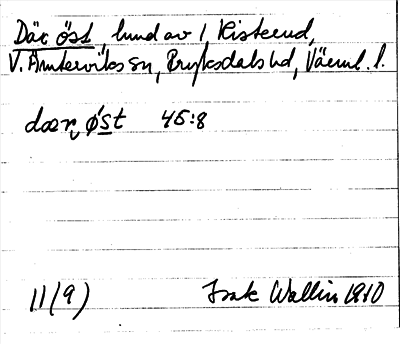 Där öst, hund av 1 Kisterud,
V. Ämterviks sn, Fryksdals hd, Värml. l.
dær øst 45:8
11(9) Isak Wallin 1910